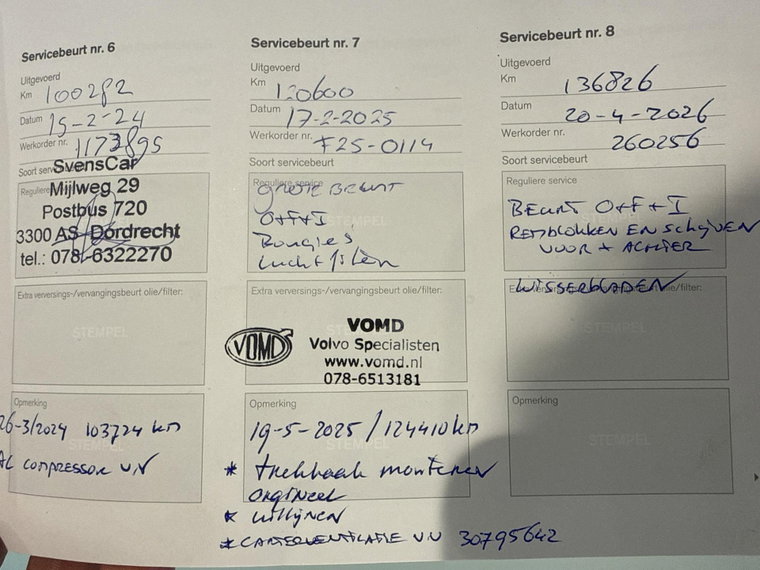 Servicebeurt nr. 6
Uitgevoerd
Km 100282
Datum 15-2-24
Werkorder nr. 1173895
Soort servicebeurt
Reguliere
SvensCar
Mijlweg 29
Postbus 720
3300 AS Dordrecht
tel.: 078-6322270
Extra verversings-/vervangingsbeurt olie/filter:
STEMPEL
Opmerking
26-3/2024 103724 km
AC COMPRESSOR VN
Servicebeurt nr. 7
Uitgevoerd
Km 120600
Datum 17-2-2025
Werkorder nr. F25-0114
Soort servicebeurt
Reguliere service
GROTE BEURT
STEMPEL
O+F+I
Bougies
Luchtfilter
Extra verversings-/vervangingsbeurt olie/filter:
VOMD
VOMD
Volvo Specialisten
www.vomd.nl
078-6513181
Opmerking
19-5-2025 / 124410 km
STEMPEL
* trekhaak monteren
orgineel
* uitlijnen
* CARTERVENTILATIE VN 30795642
Servicebeurt nr. 8
Uitgevoerd
Km 136826
Datum 20-4-2026
Werkorder nr. 260256
Soort servicebeurt
Reguliere service
BEURT O+F+I
REMBLOKKEN EN SCHIJVEN
VOOR + ACHTER
WISSERBLADEN
olie/filter:
STEMPEL
Opmerking
STEMPEL